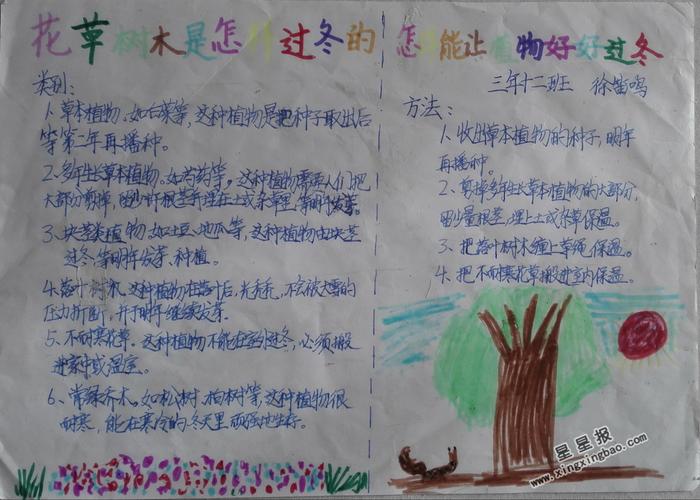 花草树木是怎样过冬的
类别:
1、草本植物。如白菜等,这种植物是把种子取出后
等第二年再播种。
2、多年生长草本植物。如芍药等,这种植物需要人们把
大部分剪掉,留少许根茎等埋在土或杂草里,等明年发芽。
3、块茎类植物,如土豆、地瓜等,这种植物由块茎
过冬,等明年发芽、种植。
4、落叶树木。这种植物在落叶后,光秃秃,不会被大雪的
压力折断,并于明年继续发芽。
5、不耐寒花草。这种植物不能在室外过冬,必须搬
进家中或温室。
6、常绿乔木。如松树、柏树等,这种植物很
耐寒,能在寒冷的冬天里顽强地生存。
怎样能让植物好好过冬
三年十二班 徐笛鸣
方法:
1、收出草本植物的种子,明年
再播种。
2、剪掉多年生长草本植物的大部分,
留少量根茎,埋上土或杂草保温。
3、把落叶树木缠上草绳,保温。
4、把不耐寒花草搬进室内保温。
星星报
www.xingxingbao.com